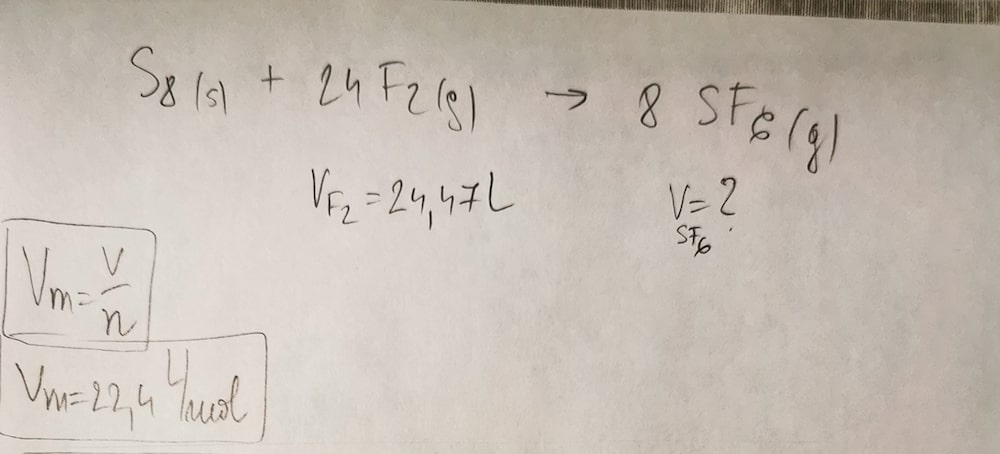 S8 (s) + 24 F2 (g) → 8 SF6 (g)
VF2 = 24,47 L V SF6 = ?
Vm = V/n
Vm = 22,4 L/mol